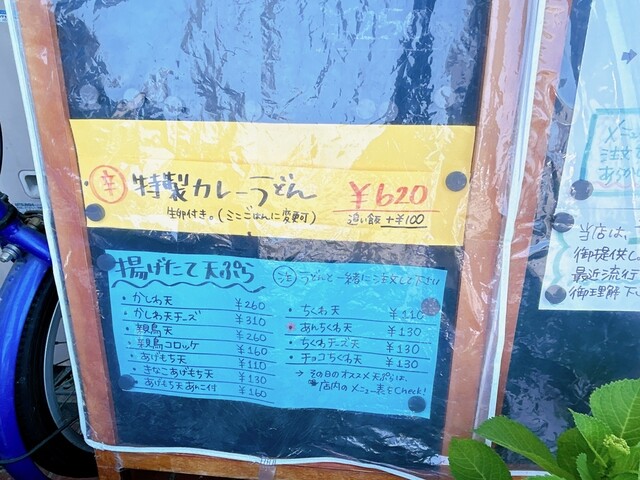 辛 特製カレーうどん ¥620
生卵付き。(ミニごはんに変更可) 追い飯 +¥100
揚げたて天ぷら 注 うどんと一緒に注文して下さい
・かしわ天 ¥260
・かしわ天チーズ ¥310
・親鳥天 ¥260
・親鳥コロッケ ¥160
・あげもち天 ¥110
・きなこあげもち天 ¥130
・あげもち天 あんこ付 ¥160
・ちくわ天 ¥110
・あんちくわ天 ¥130
・ちくわチーズ天 ¥130
・チョコちくわ天 ¥130
→ その日のオススメ天ぷらは、
店内のメニュー表をCheck!
メニ
注文
当店は、
御提供し
最近流行
御理解下